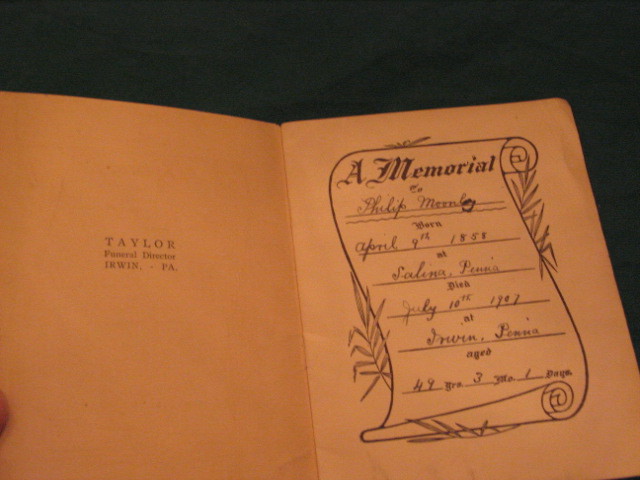 TAYLOR
Funeral Director
IRWIN, - PA.
A Memorial
To
Philip
Born
April 9th 1858
at
Salina, Penna
Died
July 10th 1907
at
Irwin, Penna
aged
49 Yrs. 3 Mo. 1 Days.